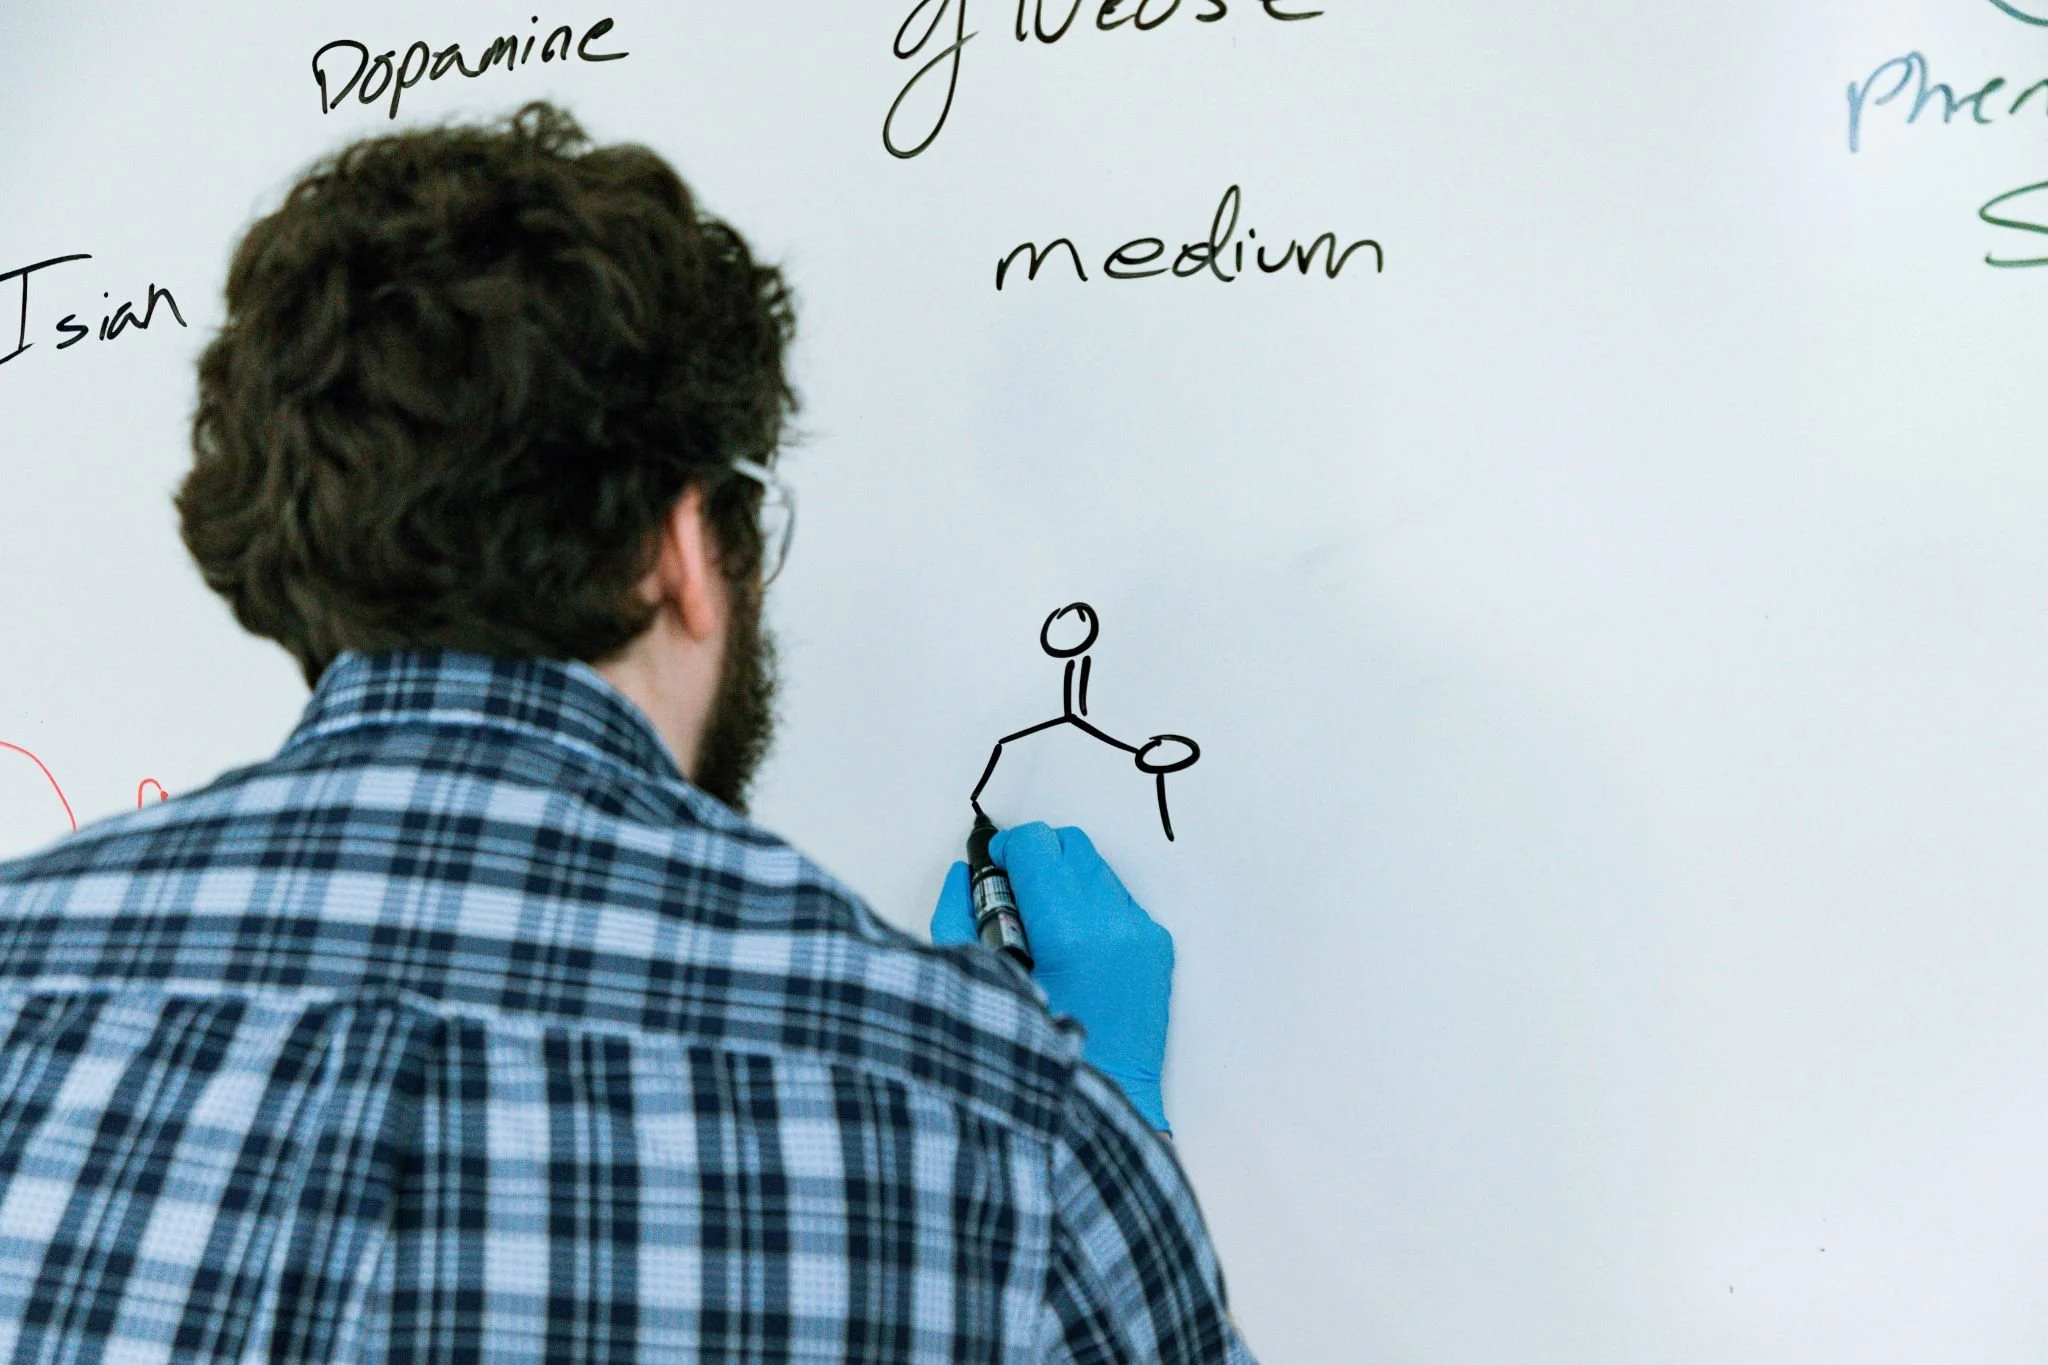 Dopamine
glucose
medium
Isian
O
O